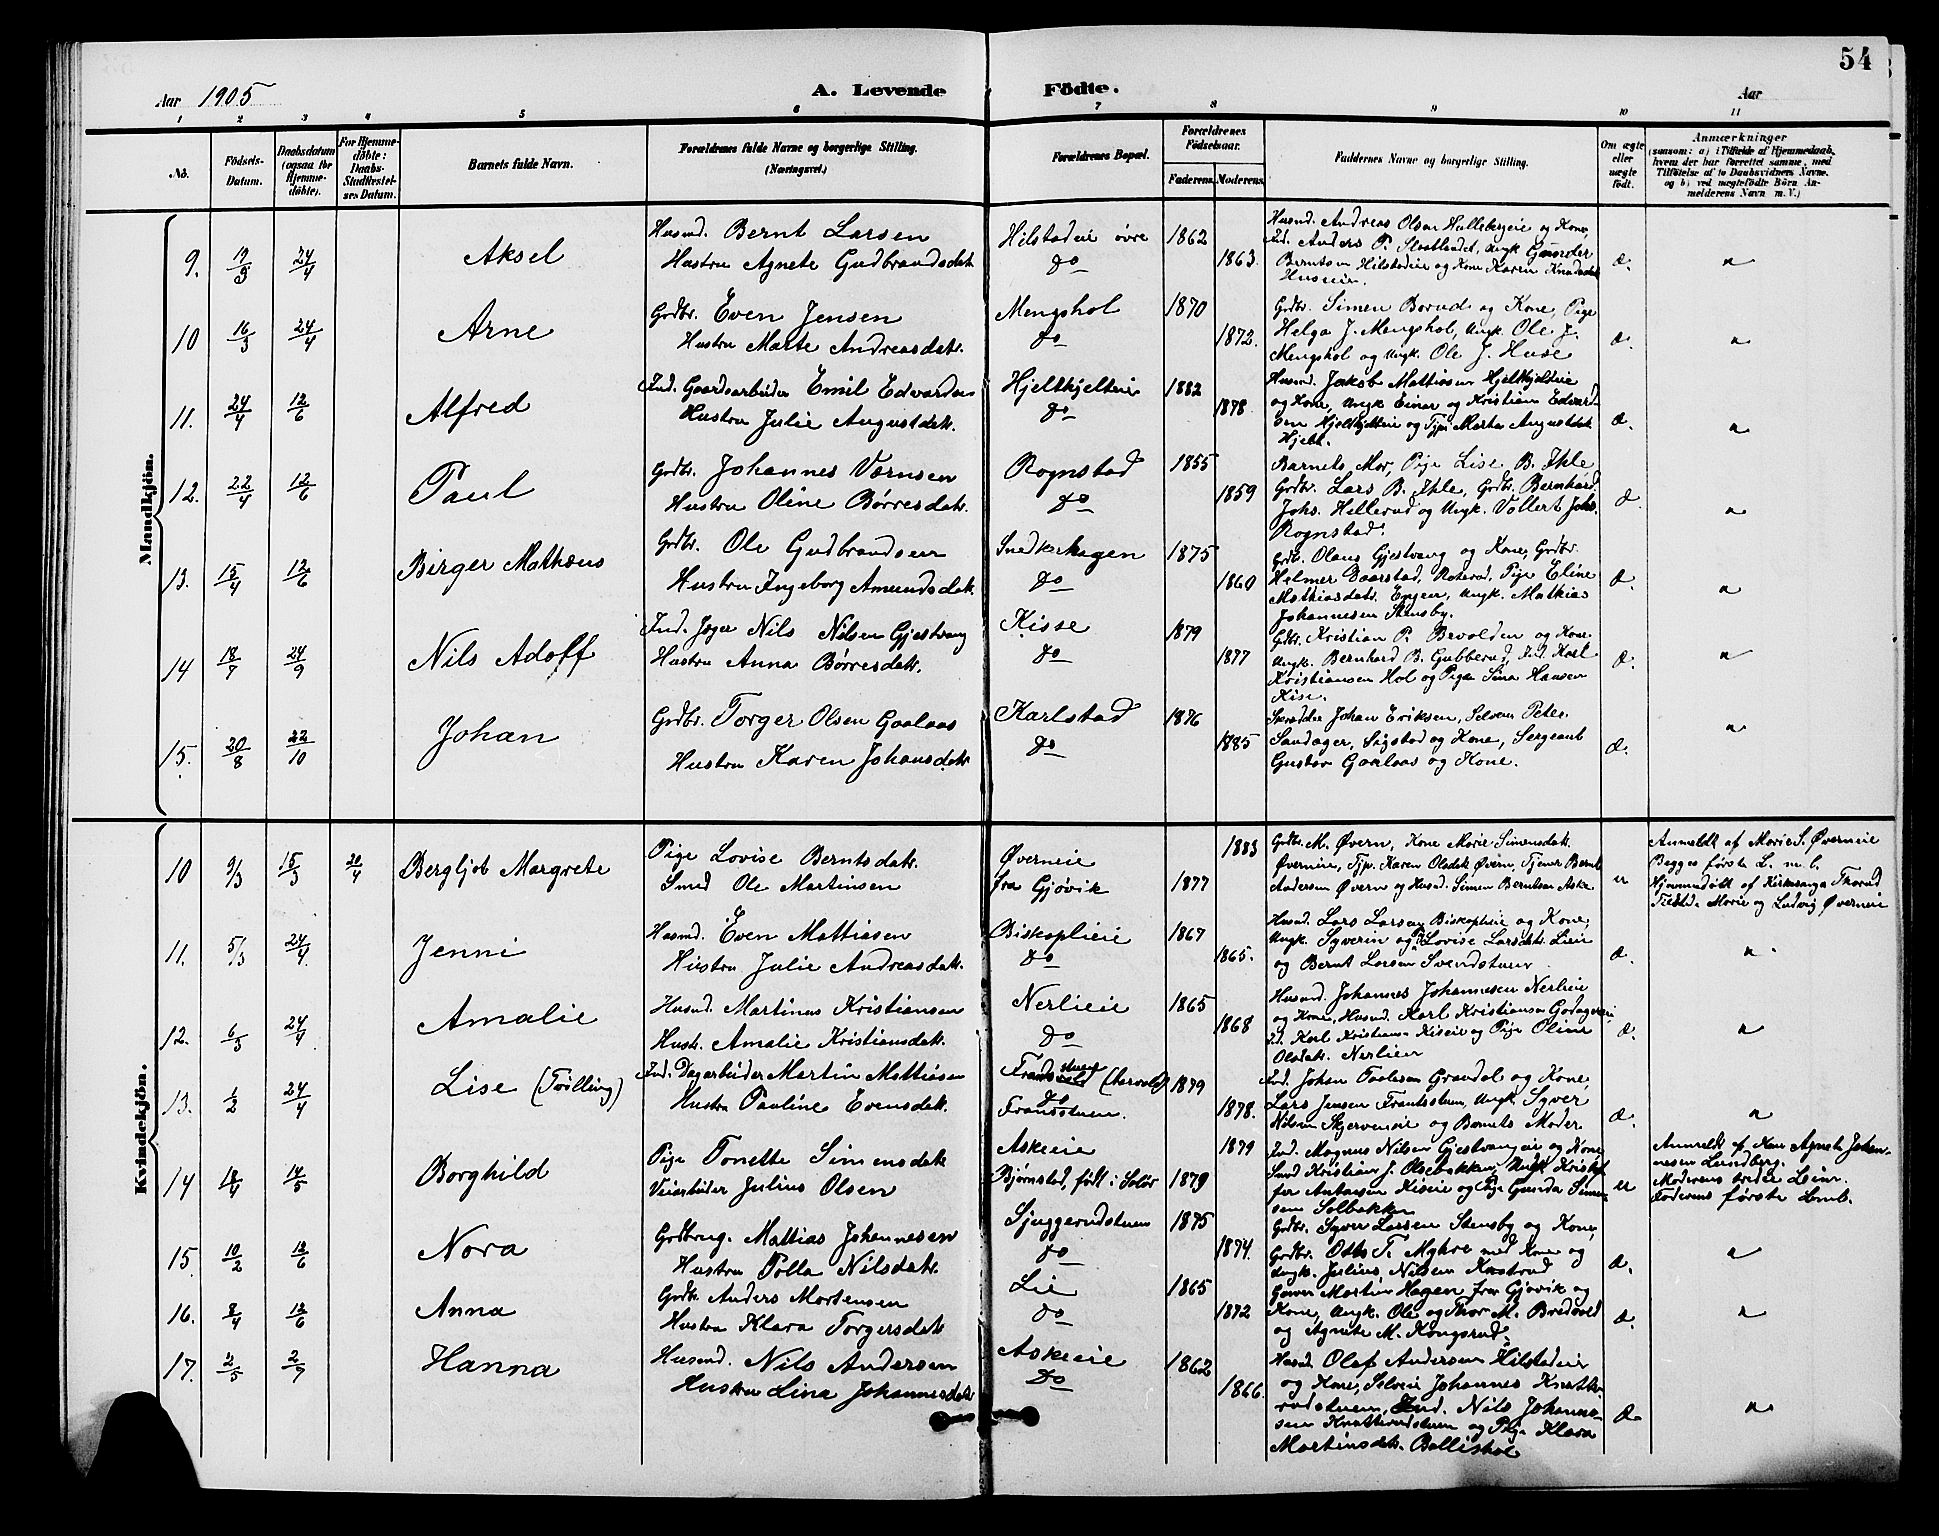 54
Aar 1905
A. Levende Födte.
Aar
1 2 3 4 5 6 7 8 9 10 11
No.
Födsels-Datum.
Daabsdatum (ogsaa for Hjemmedöbte).
For Hjemmedöbte: Daabs-Stadfæstelses Datum.
Barnets fulde Navn.
Forældrenes fulde Navne og borgerlige Stilling.
(Næringsvei.)
Forældrenes Bopæl.
Forældrenes Födselsaar.
Faderens. Moderens.
Faddernes Navne og borgerlige Stilling.
Om ægte eller uægte födt.
Anmærkninger
(saasom: a) i Tilfælde af Hjemmedaab, hvem der har forrettet samme, med Tilföielse af to Daabsvidners Navne. og b) ved uægtefödte Börn Anmelderens Navn m. V.)
Mandkjön.
9. 19/3 24/4 Aksel
Husmd. Bernt Larsen
Hustru Agnete Gudbrandsdatr.
Hilstadeie øvre
do
1862
1863.
Husmd. Andreas Olsen Hullebergeie og Kone,
Ind. Anders P. Slaatlandet, Ungk.
Berntsen Hilstadeie og Kone Karen Knudsdatr
Huseeie.
æ.
"
10 16/3 24/4 Arne
Grdbr. Even Jensen
Hustru Marte Andreasdatr.
Mengshol
do
1870
1872.
Grdbr. Simen Borud og Kone, Pige
Helga J. Mengshol, Ungk. Ole J.
Mengshol og Ungk. Ole J. Huse
æ.
"
11. 24/4 12/6 Alfred
Ind. Gaardsarbeider Emil Edvardsen
Hustru Julie Augustdatr.
Hjeltkjelteie
do
1882
1878
Husmd. Jakob Mattiasen Hjeltkjelteie
og Kone, Ungk Einar og Kristian Edvard-
sen Hjeltkjelteie og Tjpi Marta Augustdatr
Hjelt.
æ.
"
12. 22/4 12/6 Paul
Grdbr. Johannes Vørnsen
Hustru Oline Børresdatr.
Rognstad
do
1855
1859
Barnets Mor, Pige Lise B. Ihle
Grdbr. Lars B. Ihle, Grdbr. Bernhard
Johs. Hellerud og Ungk. Vollert Johs.
Rognstad.
æ.
"
13. 15/4 12/6 Birger Mathæus
Grdbr. Ole Gudbrandsen
Hustru Ingeborg Amundsdatr.
Snedkerhagen
do
1875
1860
Grdb. Olaus Gjestvang og Kone, Grdbr.
Helmer Daarstad, Roterud, Pige Eline
Mathiasdatr. Engen, Ungk. Mathias
Johannesen Stensby.
æ.
"
14 18/7 24/9 Nils Adolf
Ind. Jæger Nils Nilsen Gjestvang
Hustru Anna Børresdatr.
Kisse
do
1879
1877
Grdbr. Kristian P. Brvolden og Kone
Ungk. Bernhard B. Gubberud, Ind. Karl
Kristiansen Hol og Pige Sina Hansen
Kise.
æ.
"
15. 20/8 22/10 Johan
Grdbr. Torger Olsen Gaalaas
Hustru Karen Johansdatr
Karlstad
do
1876
1885
Skrædder Johan Eriksen, Selveier Peter
Sandager, Sigstad og Kone, Sergeant
Gustav Gaalaas og Kone.
æ.
"
Kvindekjön.
10 9/3 15/3 30/4 Bergljot Margrete
Pige Lovise Berntsdatr.
Smed Ole Martinsen
Øverneie
fra Gjøvik
1877
1883
Grdbr. M. Øvern, Kone Marie Simensdatr.
Øverneie, Tjp. Karen Olsdatr Øvern, Tjener Bernt
Andersen Øvern og Husmd. Simen Berntsen Aske
u
Anmeldt af Marie S. Øverneie
Begges første L. m. b.
Hjemmedöbt af Kirkesanger Thorud
Tilstede Marie og Ludvig Øverneie
11. 5/3 24/4 Jenni
Husmd. Even Mattiasen
Hustru Julie Andreasdatr.
Biskoplieie
do
1867
1865.
Husmd. Lars Larsen Biskoplieie og Kone,
Ungk. Syverin og P. Lovise Larsdatr. Lieie
og Bernt Larsen Svendstuen
æ.
"
12. 6/3 24/4 Amalie
Husmd. Martinus Kristiansen
Hustr. Amalie Kristiansdatr.
Nerlieie
do
1865
1868
Husmd. Johannes Johannesen Nerlieie
og Kone, Husmd. Karl Kristiansen Godagereie,
Ind. Karl Kristiansen Kiseie og Pige Oline
Olsdatr. Nerlien
æ.
"
13. 1/2 24/4 Lise (Tvilling)
Ind. Dagarbeider Martin Mattiasen
Hustru Pauline Evensdatr.
Frants stuen
do
Fransstuen.
1879
1878.
Ind. Johan Paulsen Grandal og Kone,
Lars Jensen Frantsstuen, Ungk. Syver
Nilsen Skjerveneie og Barnets Moder
æ.
"
14 18/4 14/5 Borghild
Pige Tonette Simensdatr
Veiarbeider Julius Olsen
Askeeie
Bjørnstad, født i Solør
1879
1879
Ind. Magnus Nilsen Gjestvangeie og Kone,
Smd Kristian J. Olsebakken, Ungk Kristof-
fer Antonsen Kiseie og Pige Gunda Simen-
sen Solbakken
u
Anmeldt af Kone Agnete Johan-
nesen Lundberg.
Moderens tredie Leierm.
Faderens første Lmb.
15. 10/2 12/6 Nora
Grdbrug. Mattias Johannesen
Hustru Polla Nilsdatr.
Sjuggerudstuen
do
1875
1874.
Grdbr. Syver Larsen Stensby og Kone,
Grdbr. Otto T. Myhre med Kone og
Ungk. Julius Nilsen Knatrud
æ.
"
16. 8/4 12/6 Anna
Grdbr. Anders Mortensen
Hustru Klara Torgersdatr
Lie
do
1865
1872
Garver Martin Hagen fra Gjøvik og
Kone, Ungk. Ole og Thor M. Bredvold
og Agnete M. Kongsrud.
æ.
"
17. 2/5 2/7 Hanna
Husmd. Nils Andersen
Hustru Lina Johannesdatr
Askeeie
do
1862
1866.
Husmd Olaf Andersen Hilstadeie
og Kone, Selveier Johannes Knatte-
rudstuen, Ind. Nils Johanne-
sen Knatterudstuen og Pige Klara
Martinsdatr. Ballishol
æ.
"